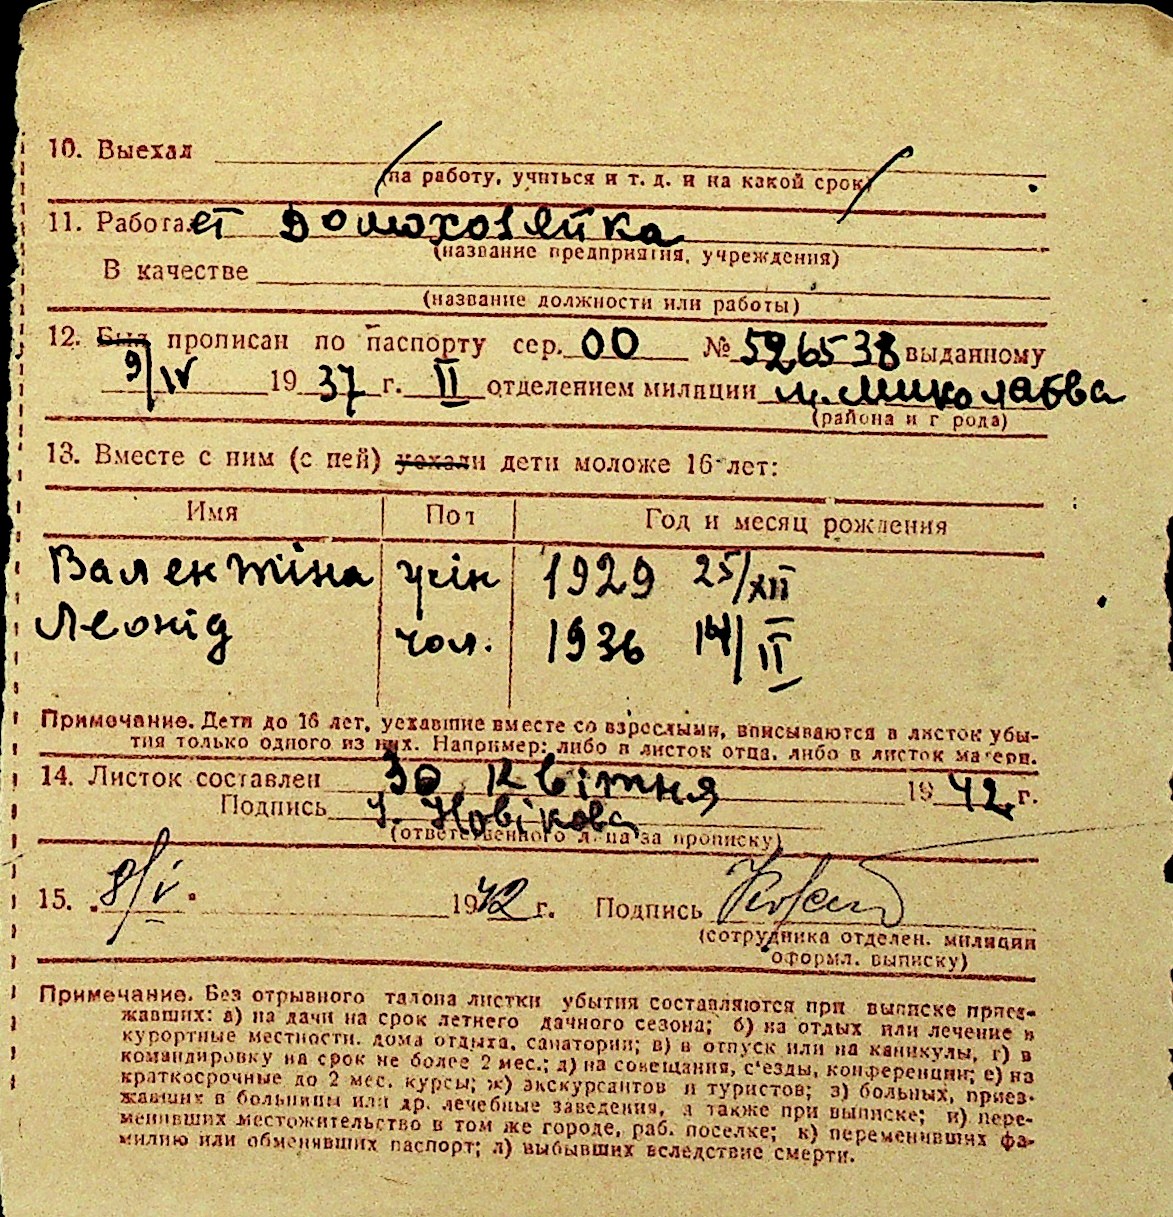 10. Выехал
(на работу, учиться и т. д. и на какой срок)
11. Работает Домохозяйка
(название предприятия, учреждения)
В качестве
(название должности или работы)
12. Был прописан по паспорту сер. 00 № 526538 выданному
9/IV 1937 г. II отделением милиции м. Миколаєва
(района и города)
13. Вместе с ним (с ней) уехали дети моложе 16 лет:
Имя Пол Год и месяц рождения
Валентіна жін 1929 25/XII
Леонід чол. 1936 14/II
Примечание. Дети до 16 лет, уехавшие вместе со взрослыми, вписываются в листок убы-
тия только одного из них. Например: либо в листок отца, либо в листок матери.
14. Листок составлен 30 Квітня 1942 г.
Подпись Новікова
(ответственного лица за прописку)
15. 8/V 1942 г. Подпись
(сотрудника отделен. милиции
оформл. выписку)
Примечание. Без отрывного талона листки убытия составляются при выписке приез-
жавших: а) на дачи на срок летнего дачного сезона; б) на отдых или лечение в
курортные местности, дома отдыха, санатории; в) в отпуск или на каникулы, г) в
командировку на срок не более 2 мес.; д) на совещания, с'езды, конференции; е) на
краткосрочные до 2 мес. курсы; ж) экскурсантов и туристов; з) больных, приез-
жавших в больницы или др. лечебные заведения, а также при выписке; и) пере-
менивших местожительство в том же городе, раб. поселке; к) переменивших фа-
милию или обменявших паспорт; л) выбывших вследствие смерти.